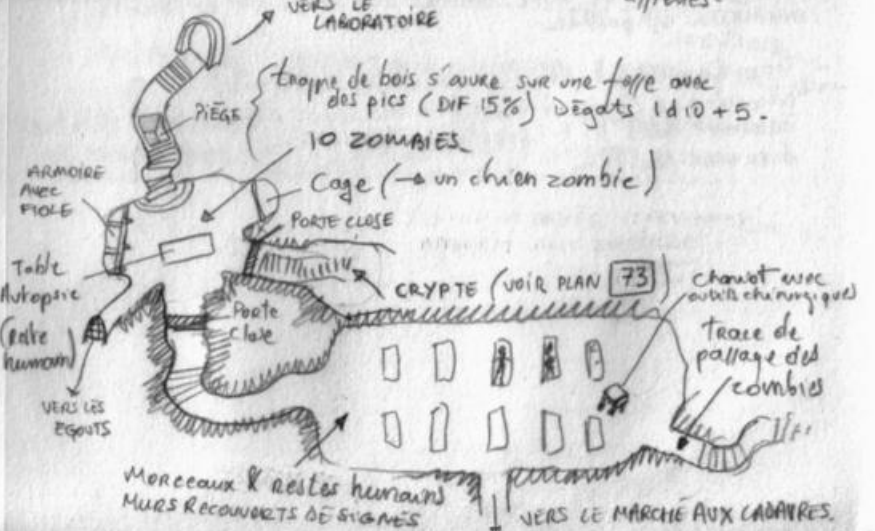 VERS LE
LABORATOIRE
trappe de bois s'ouvre sur une fosse avec
des pics (DIF 15%) Dégats 1d10 + 5.
PIÈGE
10 ZOMBIES
ARMOIRE
AVEC
FIOLE
Cage (→ un chien zombie)
PORTE CLOSE
Table
Autopsie
(reste
humain)
Porte
Close
CRYPTE (VOIR PLAN 73)
chariot avec
outils chirurgiques
trace de
passage des
zombies
VERS LES
EGOUTS
Morceaux & restes humains
MURS RECOUVERTS DE SIGNES
VERS LE MARCHÉ AUX CADAVRES.